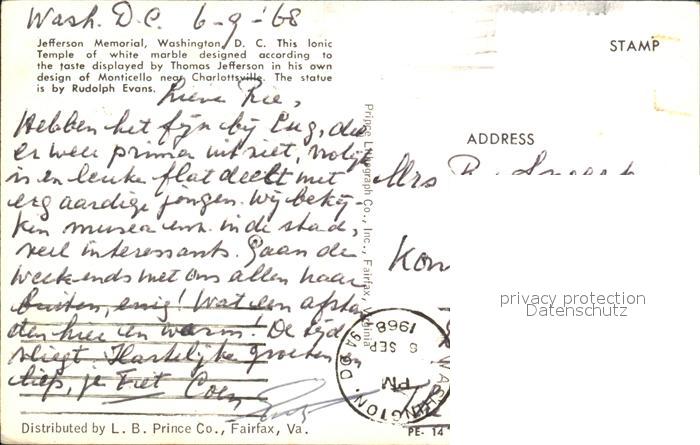 Wash. D.C. 6-9-'68
Jefferson Memorial, Washington, D. C. This Ionic
Temple of white marble designed according to
the taste displayed by Thomas Jefferson in his own
design of Monticello near Charlottsville. The statue
is by Rudolph Evans.
STAMP
ADDRESS
Lieve Rie,
Hebben het fijn bij Eug, die
er weer prima uitziet, vrolijk
is en leuke flat deelt met
erg aardige jongen. Wij bekij-
ken musea enz. in de stad,
veel interessants. Gaan de
weekends met ons allen naar
buiten, enig! Wat een afstan
den hier en warm! De tijd
vliegt. Hartelijke groeten en
liefs, je Coen
Mrs
Kon
Prince Lithograph Co., Inc., Fairfax, Virginia
WASHINGTON, D.C.
PM
6 SEP
1968
Distributed by L. B. Prince Co., Fairfax, Va.
PE- 14
privacy protection
Datenschutz